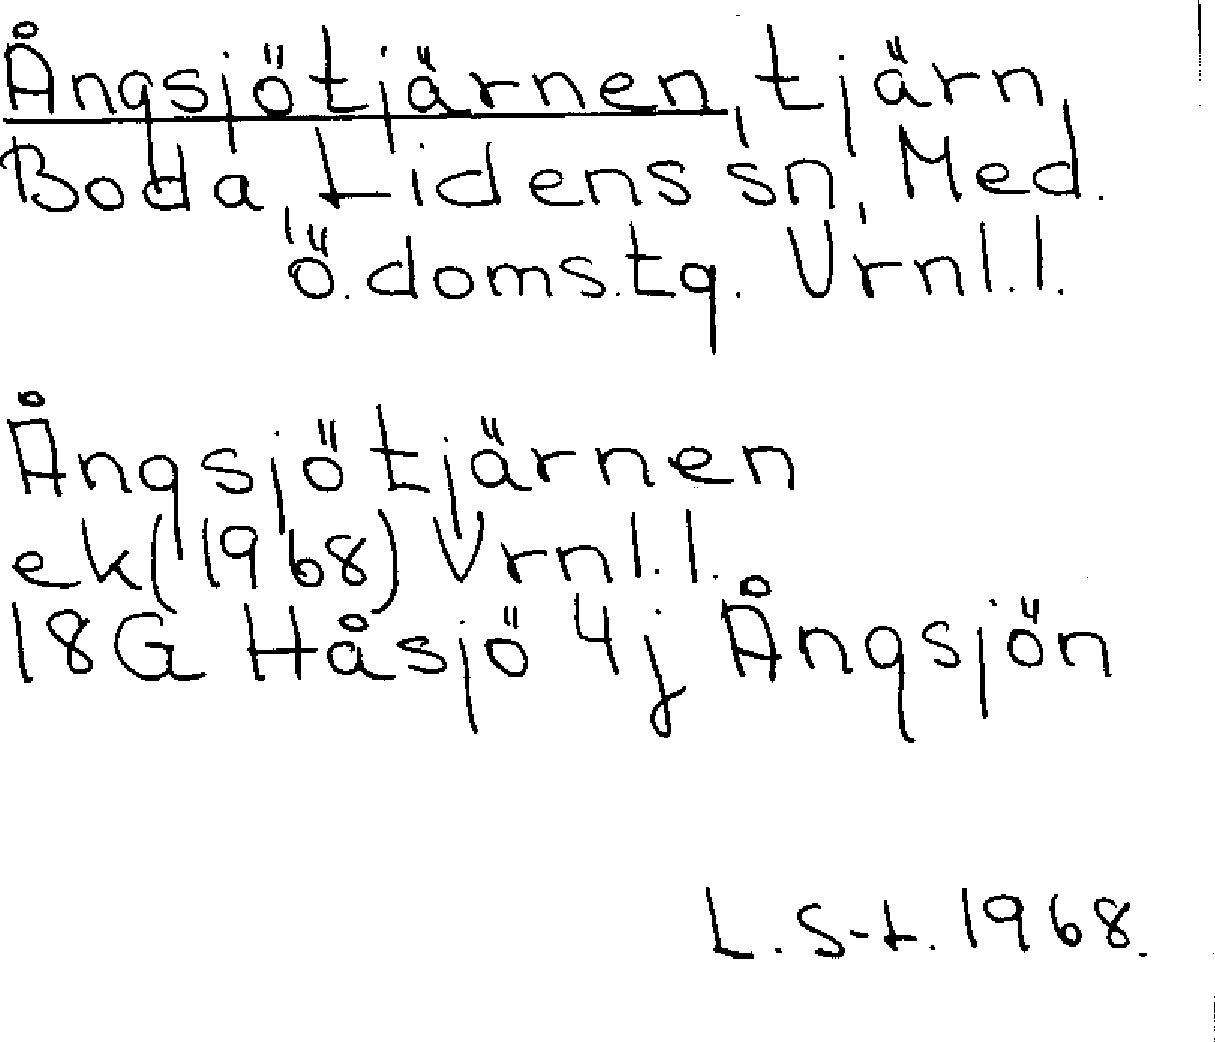 Ångsjötjärnen, tjärn,
Boda, Lidens sn, Med.
ö. doms.tg. Vrnl.l.
Ångsjötjärnen
ek (1968) Vrnl.l.
18G Håsjö 4j Ångsjön
L. S-t. 1968.